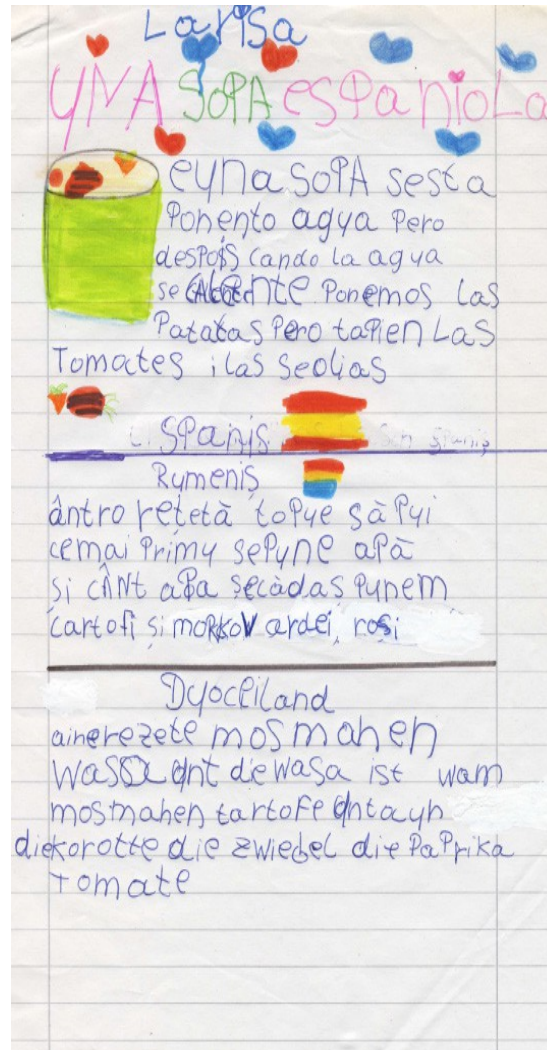 Larisa
UNA SOPA esPanioLa
eyna SOPA sesta
Ponento agya Pero
despois cando la agya
se calente Ponemos las
Patatas Pero tapien Las
Tomates i las seolias
SPanis
Rymeniș
ântro rețetă topye să Pyi
cemai Primy sePyne aPă
si cÎNt aPa secădas Pynem
cartofi și morkov ardei roși
Dyoceiland
ainerezete mosmahen
WaSa ont die wasa ist wam
mosmahen tartofe ontayh
die korotte die zwiebel die PaPrika
Tomate